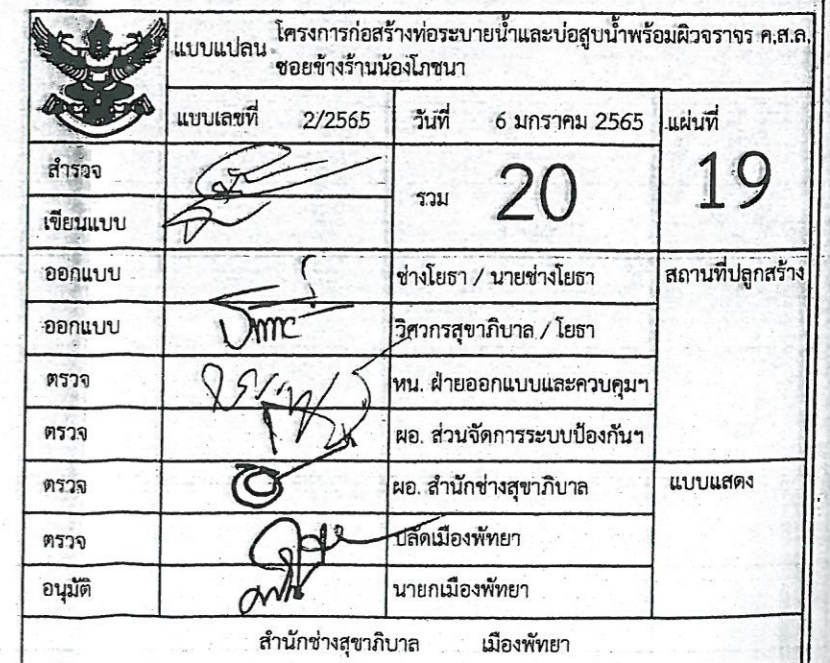 แบบแปลน โครงการก่อสร้างท่อระบายน้ำและบ่อสูบน้ำพร้อมผิวจราจร ค.ส.ล.
ซอยข้างร้านน้องโภชนา
แบบเลขที่ 2/2565 วันที่ 6 มกราคม 2565 แผ่นที่
สำรวจ รวม 20 19
เขียนแบบ
ออกแบบ ช่างโยธา / นายช่างโยธา สถานที่ปลูกสร้าง
ออกแบบ วิศวกรสุขาภิบาล / โยธา
ตรวจ หน. ฝ่ายออกแบบและควบคุมฯ
ตรวจ ผอ. ส่วนจัดการระบบป้องกันฯ
ตรวจ ผอ. สำนักช่างสุขาภิบาล แบบแสดง
ตรวจ ปลัดเมืองพัทยา
อนุมัติ นายกเมืองพัทยา
สำนักช่างสุขาภิบาล เมืองพัทยา